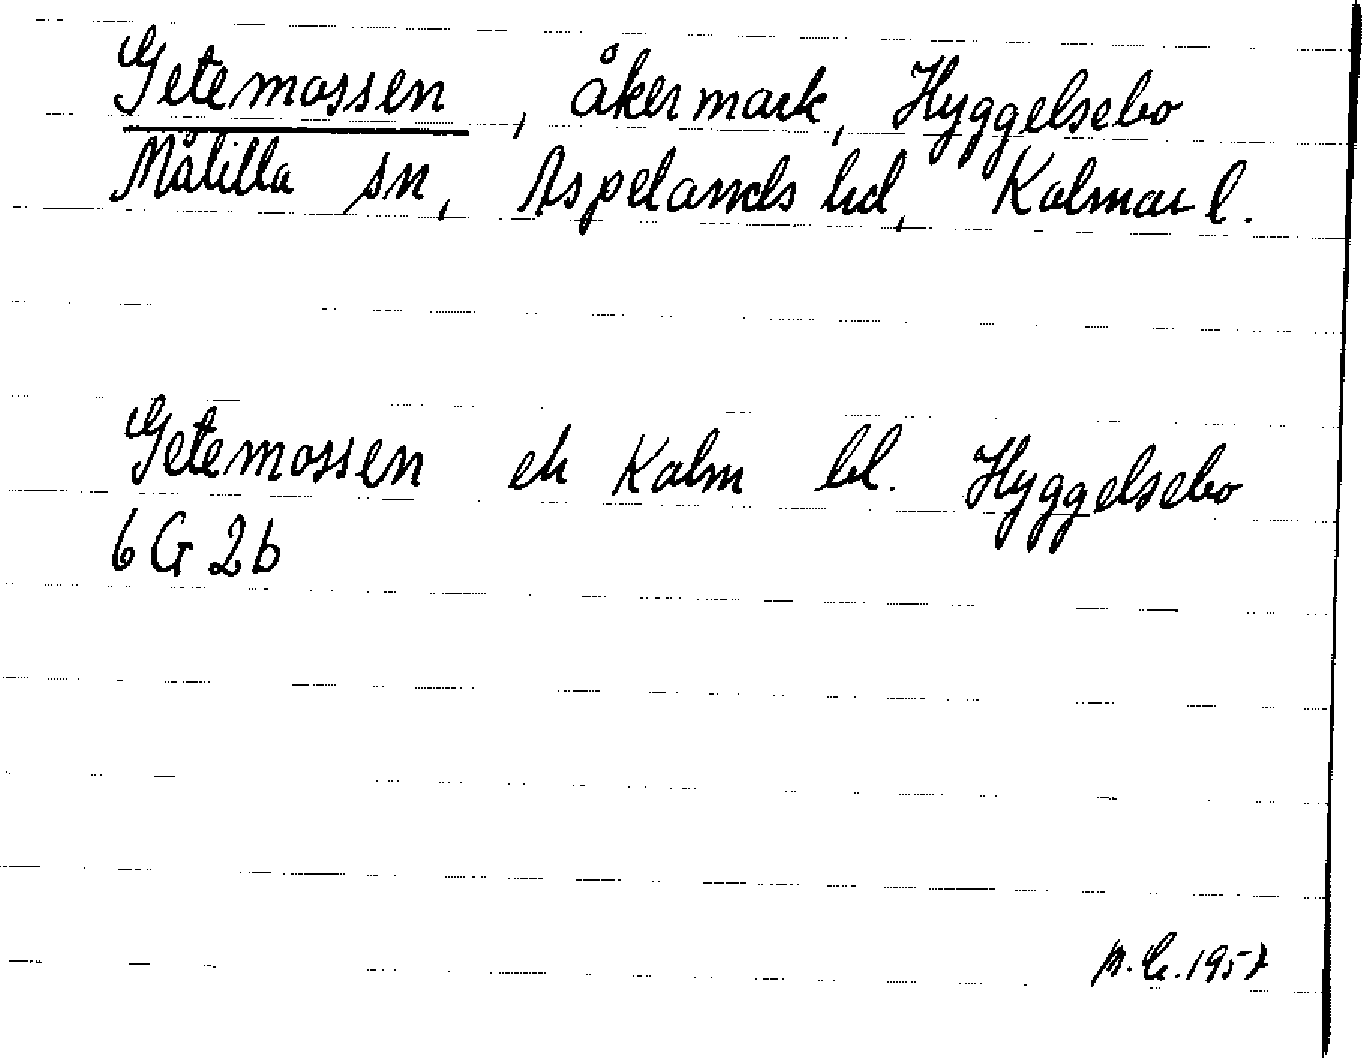 Getemossen, åkermark, Hyggelsebo
Målilla sn, Aspelands hd, Kalmar l.
Getemossen ek Kalm bl. Hyggelsebo
6 G 2b
1957